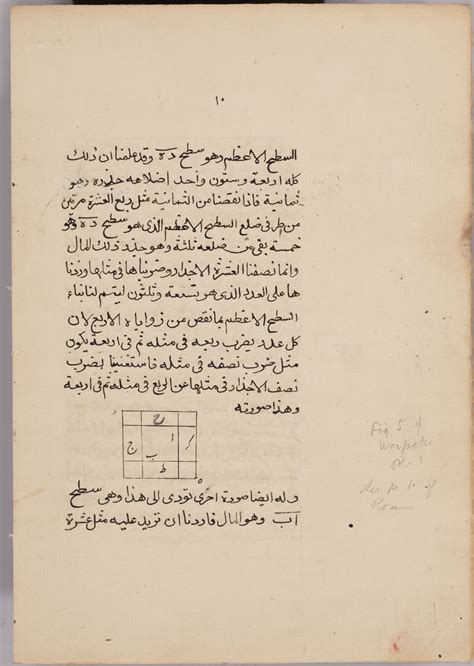 ١٠
السطح الاعظم وهو سطح ده وقد علمنا ان ذلك
كله اربعة وستون واحد اضلاعه جذره وهو
ثمانية فاذا نقصنا من الثمانية مثل ربع العشرة مرتين
من طرفى ضلع السطح الاعظم الذى هو سطح ده وهو
خمسة بقى من ضلعه ثلثة وهو جذر ذلك المال
وانما نصفنا العشرة الاجذار وضربناها فى مثلها وزدنا
ها على العدد الذى هو تسعة وثلثون ليتم لنا بناء
السطح الاعظم بما نقص من زواياه الاربع لان
كل عدد يضرب ربعه فى مثله ثم فى اربعة يكون
مثل ضرب نصفه فى مثله فاستغنينا بضرب
نصف الاجذار فى مثلها عن الربع فى مثله ثم فى اربعة
وهذا صورته
د
ح
ج ب ا ك
ط
ه
وله ايضا صورة اخرى تؤدى الى هذا وهى سطح
اب وهو المال فاردنا ان نزيد عليه مثل عشرة
Fig 5 of
pl. 1
See p 10 of
Rosen